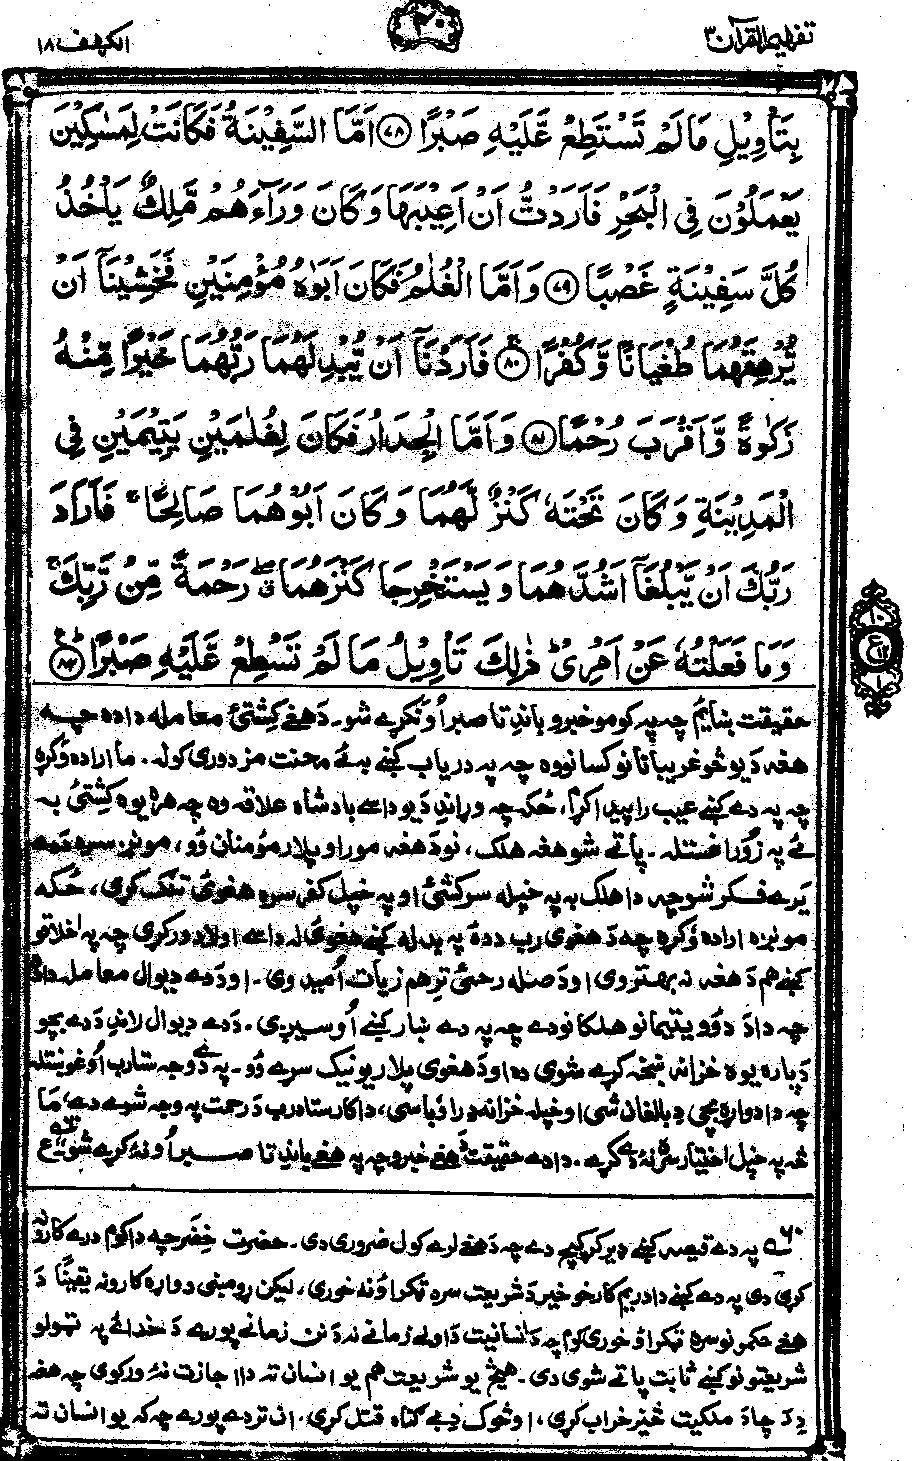 تفہیم القرآن ۳
۲۰
الکہف ۱۸
بِتَأْوِيْلِ مَا لَمْ تَسْتَطِعْ عَّلَيْهِ صَبْرًا ﴿۷۸﴾ اَمَّا السَّفِيْنَةُ فَكَانَتْ لِمَسٰكِيْنَ
يَعْمَلُوْنَ فِي الْبَحْرِ فَاَرَدْتُّ اَنْ اَعِيْبَهَا وَكَانَ وَرَآءَهُمْ مَّلِكٌ يَّاْخُذُ
كُلَّ سَفِيْنَةٍ غَصْبًا ﴿۷۹﴾ وَاَمَّا الْغُلٰمُ فَكَانَ اَبَوٰهُ مُؤْمِنَيْنِ فَخَشِيْنَآ اَنْ
يُّرْهِقَهُمَا طُغْيَانًا وَّكُفْرًا ﴿۸۰﴾ فَاَرَدْنَآ اَنْ يُّبْدِلَهُمَا رَبُّهُمَا خَيْرًا مِّنْهُ
زَكٰوةً وَّاَقْرَبَ رُحْمًا ﴿۸۱﴾ وَاَمَّا الْجِدَارُ فَكَانَ لِغُلٰمَيْنِ يَتِيْمَيْنِ فِي
الْمَدِيْنَةِ وَكَانَ تَحْتَهٗ كَنْزٌ لَّهُمَا وَكَانَ اَبُوْهُمَا صَالِحًا ۚ فَاَرَادَ
رَبُّكَ اَنْ يَّبْلُغَآ اَشُدَّهُمَا وَيَسْتَخْرِجَا كَنْزَهُمَا ۖ رَحْمَةً مِّنْ رَّبِّكَ ۚ
وَمَا فَعَلْتُهٗ عَنْ اَمْرِيْ ؕ ذٰلِكَ تَاْوِيْلُ مَا لَمْ تَسْطِعْ عَّلَيْهِ صَبْرًا ﴿۸۲﴾
حقیقت ښایم چه په کومو خبرو باندِ تا صبر اُو نکړے شو۔ دَ هغے کِشتئ معامله داده چه
هغه دَ یو څو غریبانانو کسانو وه چه په دریاب کښے ئے محنت مزدوری کوله. ما اراده وَکړه
چه په دے کښے عیب راپیدا کړم، ځکه چه وړاندِ دَ یو داسے بادشاه علاقه وه چه هره یوه کِشتئ به
ئے په زور اخستله۔ پاتے شو هغه هلک، نو دَ هغه مور او پلار مؤمنان وُو، مونږ سره دَ دے
یَره فکر شو چه دا هلک به په خپله سرکشئ او په خپل کفر سره هغوی تنګ کړی، ځکه
مونږه اراده وَکړه چه دَ هغوی رب دده په بدله کښے هغوی له داسے اولاد ورکړی چه په اخلاقو
کښے هم دَ هغه نه بهتر وی او دَ صله رحمئ ترِ هم زیات اُمید وی۔ او دَ دے دیوال معامله داده
چه دا دَ دوُو یتیمانو هلکانو دے چه په دے ښار کښے اُوسیږی. دَ دے دیوال لاندِ دَ دے بچو
دَپاره یوه خزانه ښخه کړے شوی ده او دَ هغوی پلار یو نیک سړے وُو۔ په دے وجه ستا رب اُوغوښتله
چه دا دواړه بچی دِ بالغان شی او خپله خزانه دِ راوُباسی، دا کار ستا د رب دَ رحمت په وجه شوے دے، ما
څه په خپل اختیار سره نهٔ دے کړے. دا دے حقیقت دَ هغے خبرو چه په هغے باندِ تا صبر اُونهٔ کړے شو
۶۰ په دے قصه کښے ډیر کړکیچ دے چه دَ هغے لرے کول ضروری دی۔ حضرت خِضر چه دا کوم درے کارونه
کړی دی په دے کښے دا دریم کار خو خیر دَ شریعت سره ټکر اُو نه خوری، لیکن رومبنی دواړه کارونه یقیناً دَ
هغے حکمونو سره ټکر اُوخوری کوم چه دَ انسانیت دَ اولے زمانے نه دَ نن زمانے پورے دَ خدائے په ټولو
شریعتونو کښے ثابت پاتے شوی دی۔ هیڅ یو شریعت هم یو انسان ته دا اجازت نهٔ ورکوی چه هغه
دِ دَ چا دَ ملکیت څیز خراب کړی، او څوک دِ بے ګناه قتل کړی. ان تردے پورے چه که یو انسان ته